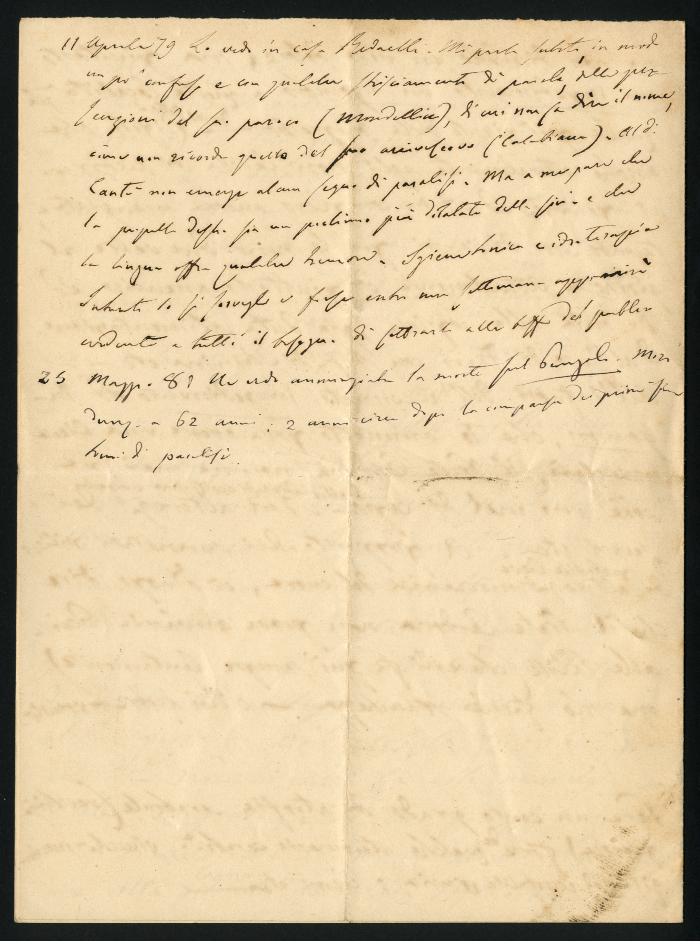 11 Aprile 79 Lo vedo in casa Bedaelli. Mi parla subito in modo
un po' confuso e con qualche strisciamento di parola, delle per-
secuzioni del suo paroco (Mondellico), di cui non sa dire il nome,
come non ricorda quello del suo arcivescovo (Calabiana).
Cantù non emerge alcun segno di paralisi. Ma a me pare che
la pupilla destra sia un pochino più dilatata della sin.a e che
la lingua offra qualche tremore. Igiene tonica e idroterapia
Intanto lo si sorvegli e forse entro una settimana apparirà
evidente a tutti il bisogno di sottrarlo alle beffe del pubblico
25 Magg. 81 Vedo annunziata la morte del Morì
dunq. a 62 anni: 2 anni circa dopo la comparsa dei primi sin
tomi di paralisi.